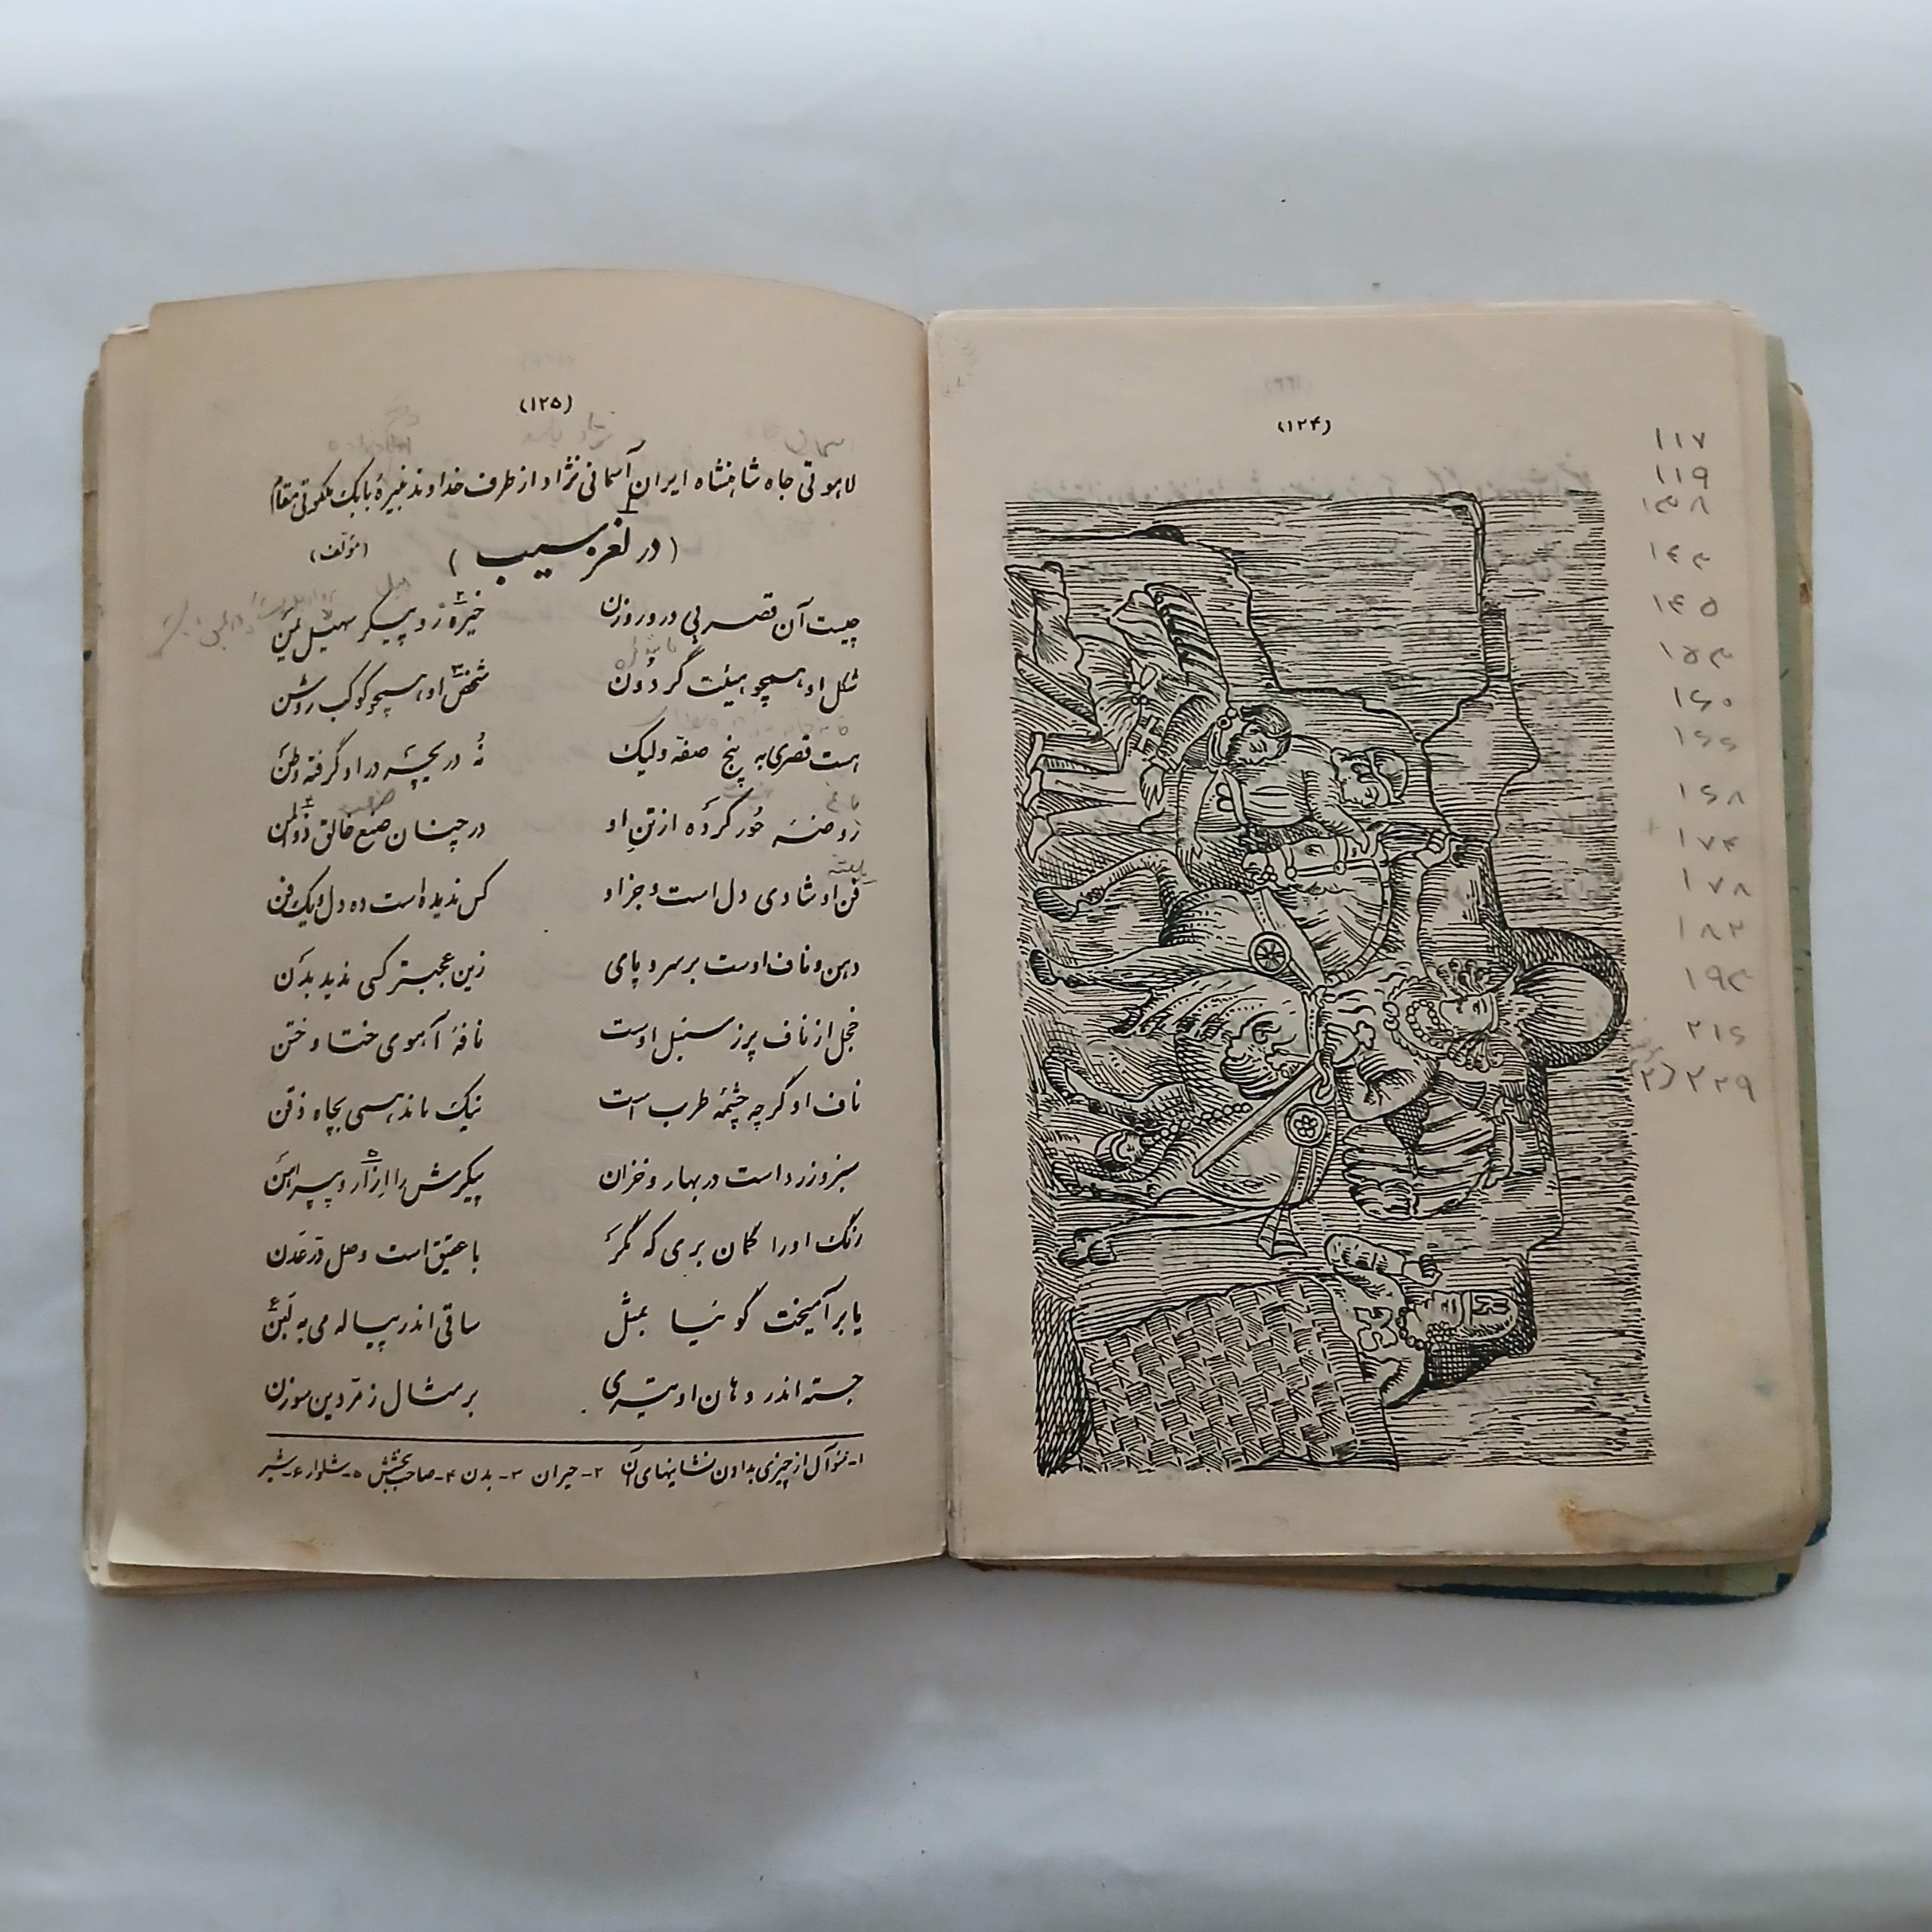 (۱۲۴)
۱۱۷
۱۱۹
۱۴۵
۱۶۰
۱۶۶
۱۶۸
۱۷۴
۱۷۸
۱۸۲
۲۱۶
(۲) ۲۲۹
(۱۲۵)
لاهوتی جاه شاهنشاه ایران آسمانی نژاد از طرف خداوند نبیرهٔ بابک ملکوتی مقام
(در لغز سیب) (مؤلف)
چیست آن قصر بی در و روزن خیره زو پیکر سهیل یمن
شکل او همچو هیئت گردون شخص او همچو کوکب روشن
هست قصری به پنج صفه ولیک نُه دریچه در او گرفته وطن
روضهٔ حور کرده از تن او در چنان صنع خالق ذوالمن
فن او شادی دل است و جز او کس ندیده است ده دل و یک فن
دهن و ناف اوست بر سر و پای زین عجبتر کسی ندید بدن
خجل از ناف پر ز سنبل اوست نافهٔ آهوی ختا و ختن
ناف او گرچه چشمهٔ طرب است نیک ماند همی بچاه ذقن
سبز و زرد است در بهار و خزان پیکرش را ازار و پیراهن
رنگ او را گمان بری که مگر با عقیق است وصل دّر عدن
یا برآمیخت گوئیا بمثل ساقی اندر پیاله می به لبن
جسته اندر دهان او تیری بر مثال زمرّدین سوزن
۱- سئوآل از چیزی بدادن نشانیهای آن ۲- حیران ۳- بدن ۴- صاحب بخشش ۵- شلوار ۶- شیر